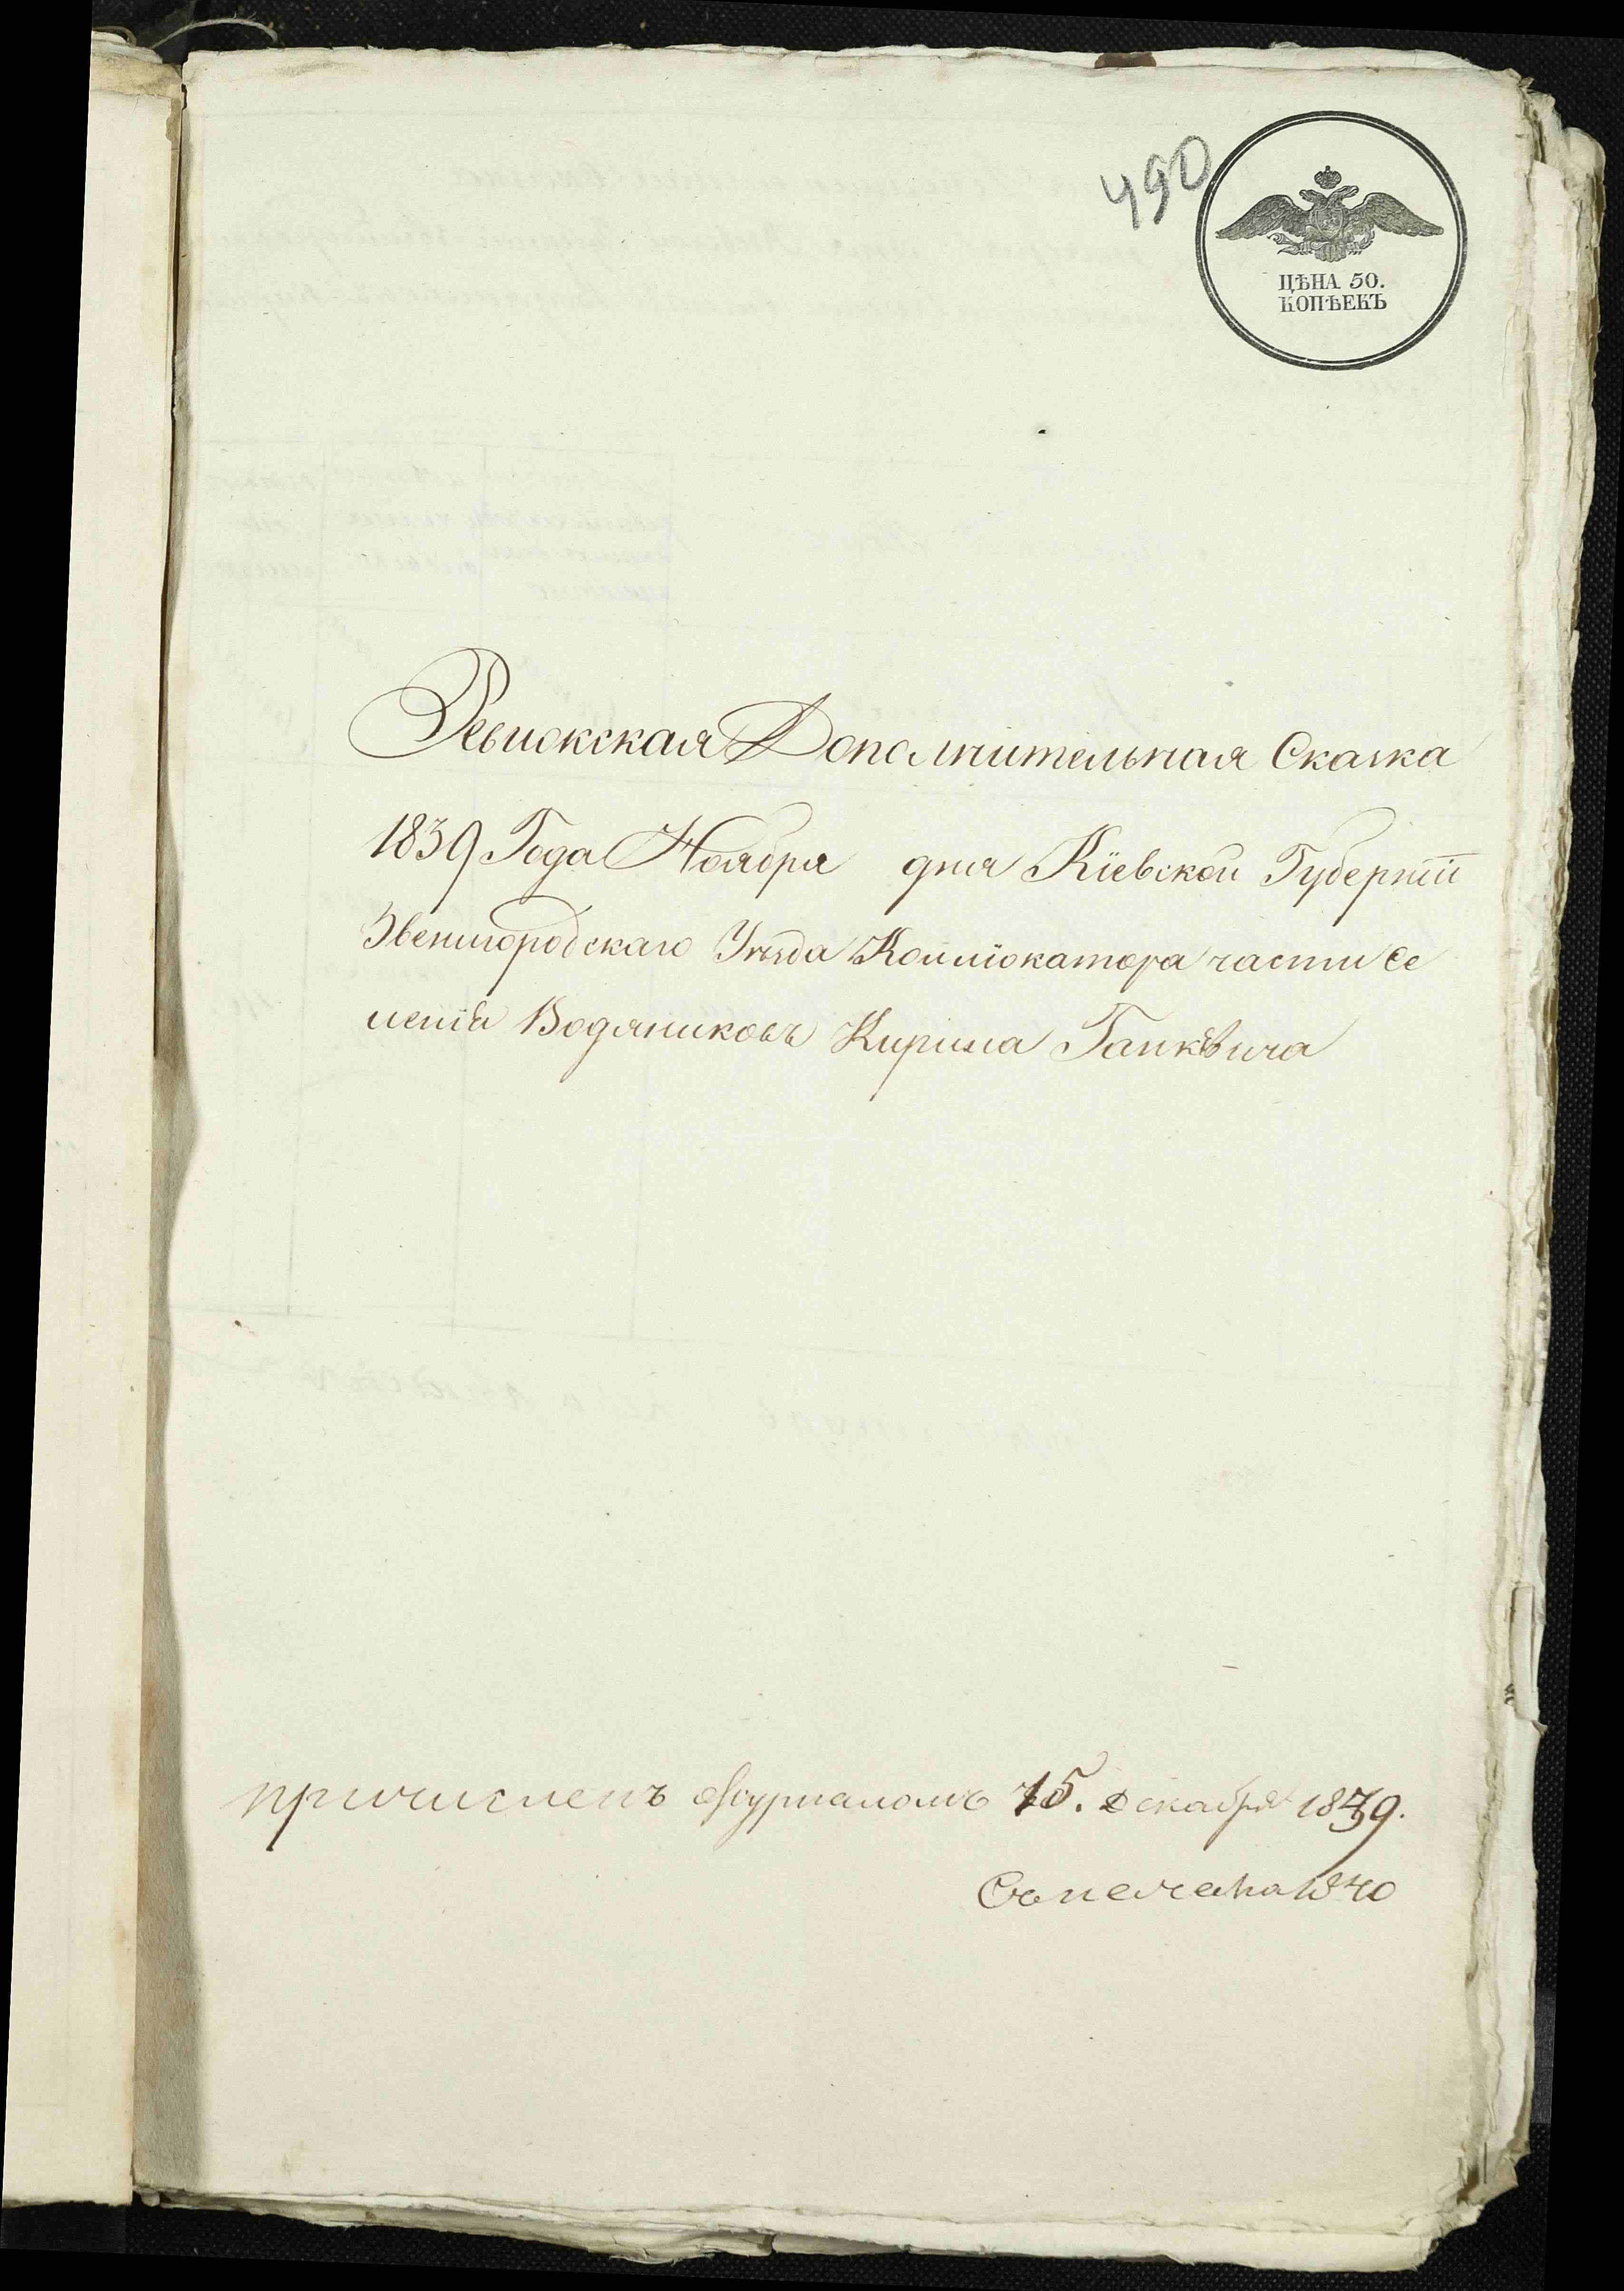 490
ЦѢНА 50.
КОПѢЕКЪ
Ревизкская Дополнительная Сказка
1839 Года Ноября дня Кіевской Губерніи
Звенигородскаго Уѣзда Коллокатора части Се
ленія Водяниковъ Кирила Ганкѣвича
причисленъ Журналомъ 15. Декабря 1839.
1840